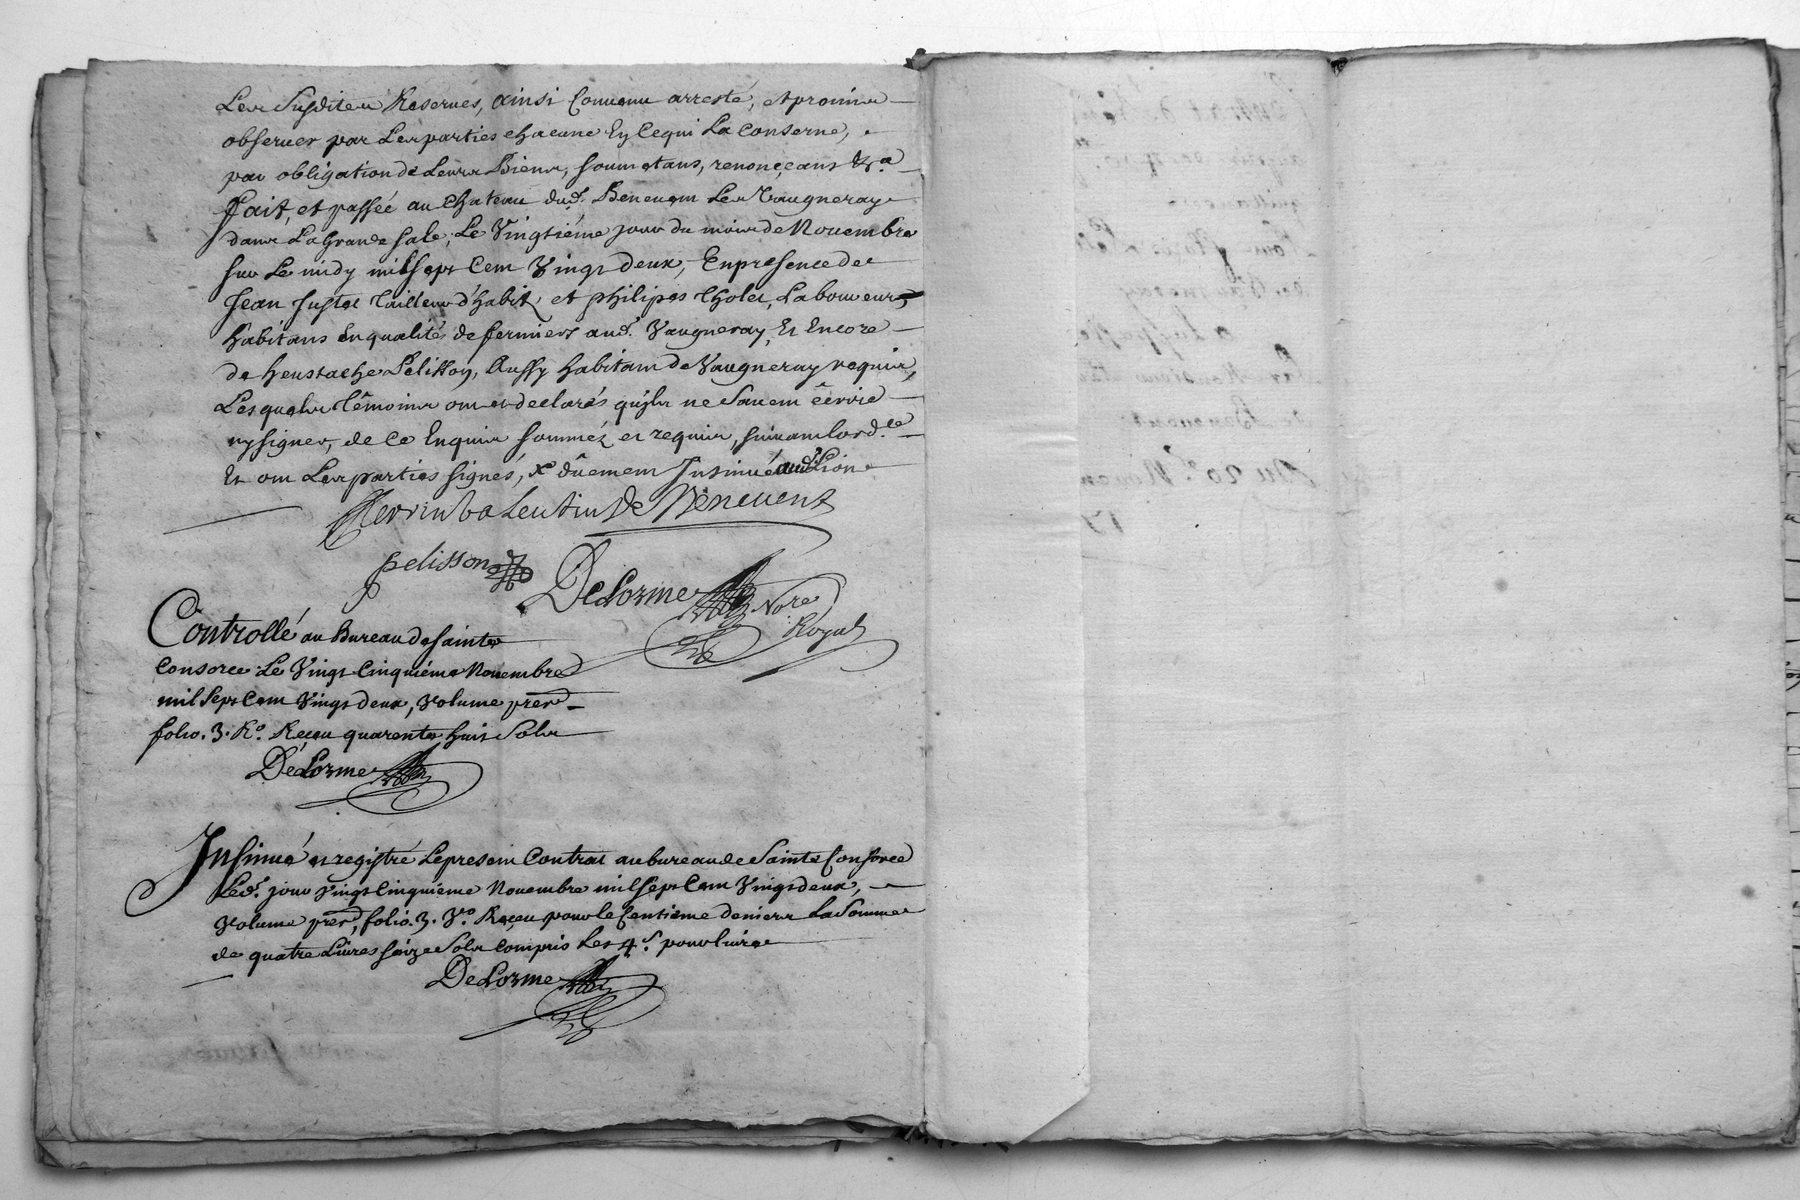 Les Susdites Reserves, ainsi Convenu arresté, et promis
observer par Les parties chacune En Ce qui La Conserne,
par obligation de Leurs Biens, soumetans, renonçeans &.a
fait, et passée au Chateau dud. Benevent Les Vaugneray
dans La Grande Sale, Le Vingtiéme jour du mois de Novembre
sur Le midy mil sept Cent Vingt deux, En presence de
Jean Tailleur d'habit, et philipes Tholet, Laboureurs
habitans En qualités de fermiers aud. Vaugneray, Et Encore
de heustache Pelisson, Aussy habitant de Vaugneray requis,
Lesquels têmoins ont declarés qu'jls ne Savent écrire
ny signer, de Ce Enquis sommés et requis, suivant lord.ce
Et ont Les parties signés, dûement Insinué aud. Lion
Perrin valentin De Bénevent
pelisson
DeLorme Nore
Royal
Controllé au Bureau de sainte
Consorce Le Vingt Cinquiéme Novembre
mil Sept Cent Vingt deux, Volume prer
folio. 3. Ro. Reçeu quarente huit Sols
DéLorme
Insinué et registré Le presant Contrat au bureau de Sainte Consorce
Led. jour Vingt Cinquiéme Novembre mil Sept Cent Vingt deux,
Volume prer, folio. 3. Vo. Reçeu pour le Centieme deniers La Somme
de quatre Livres seize Sols Compris Les 4 s. pour livre
DeLorme